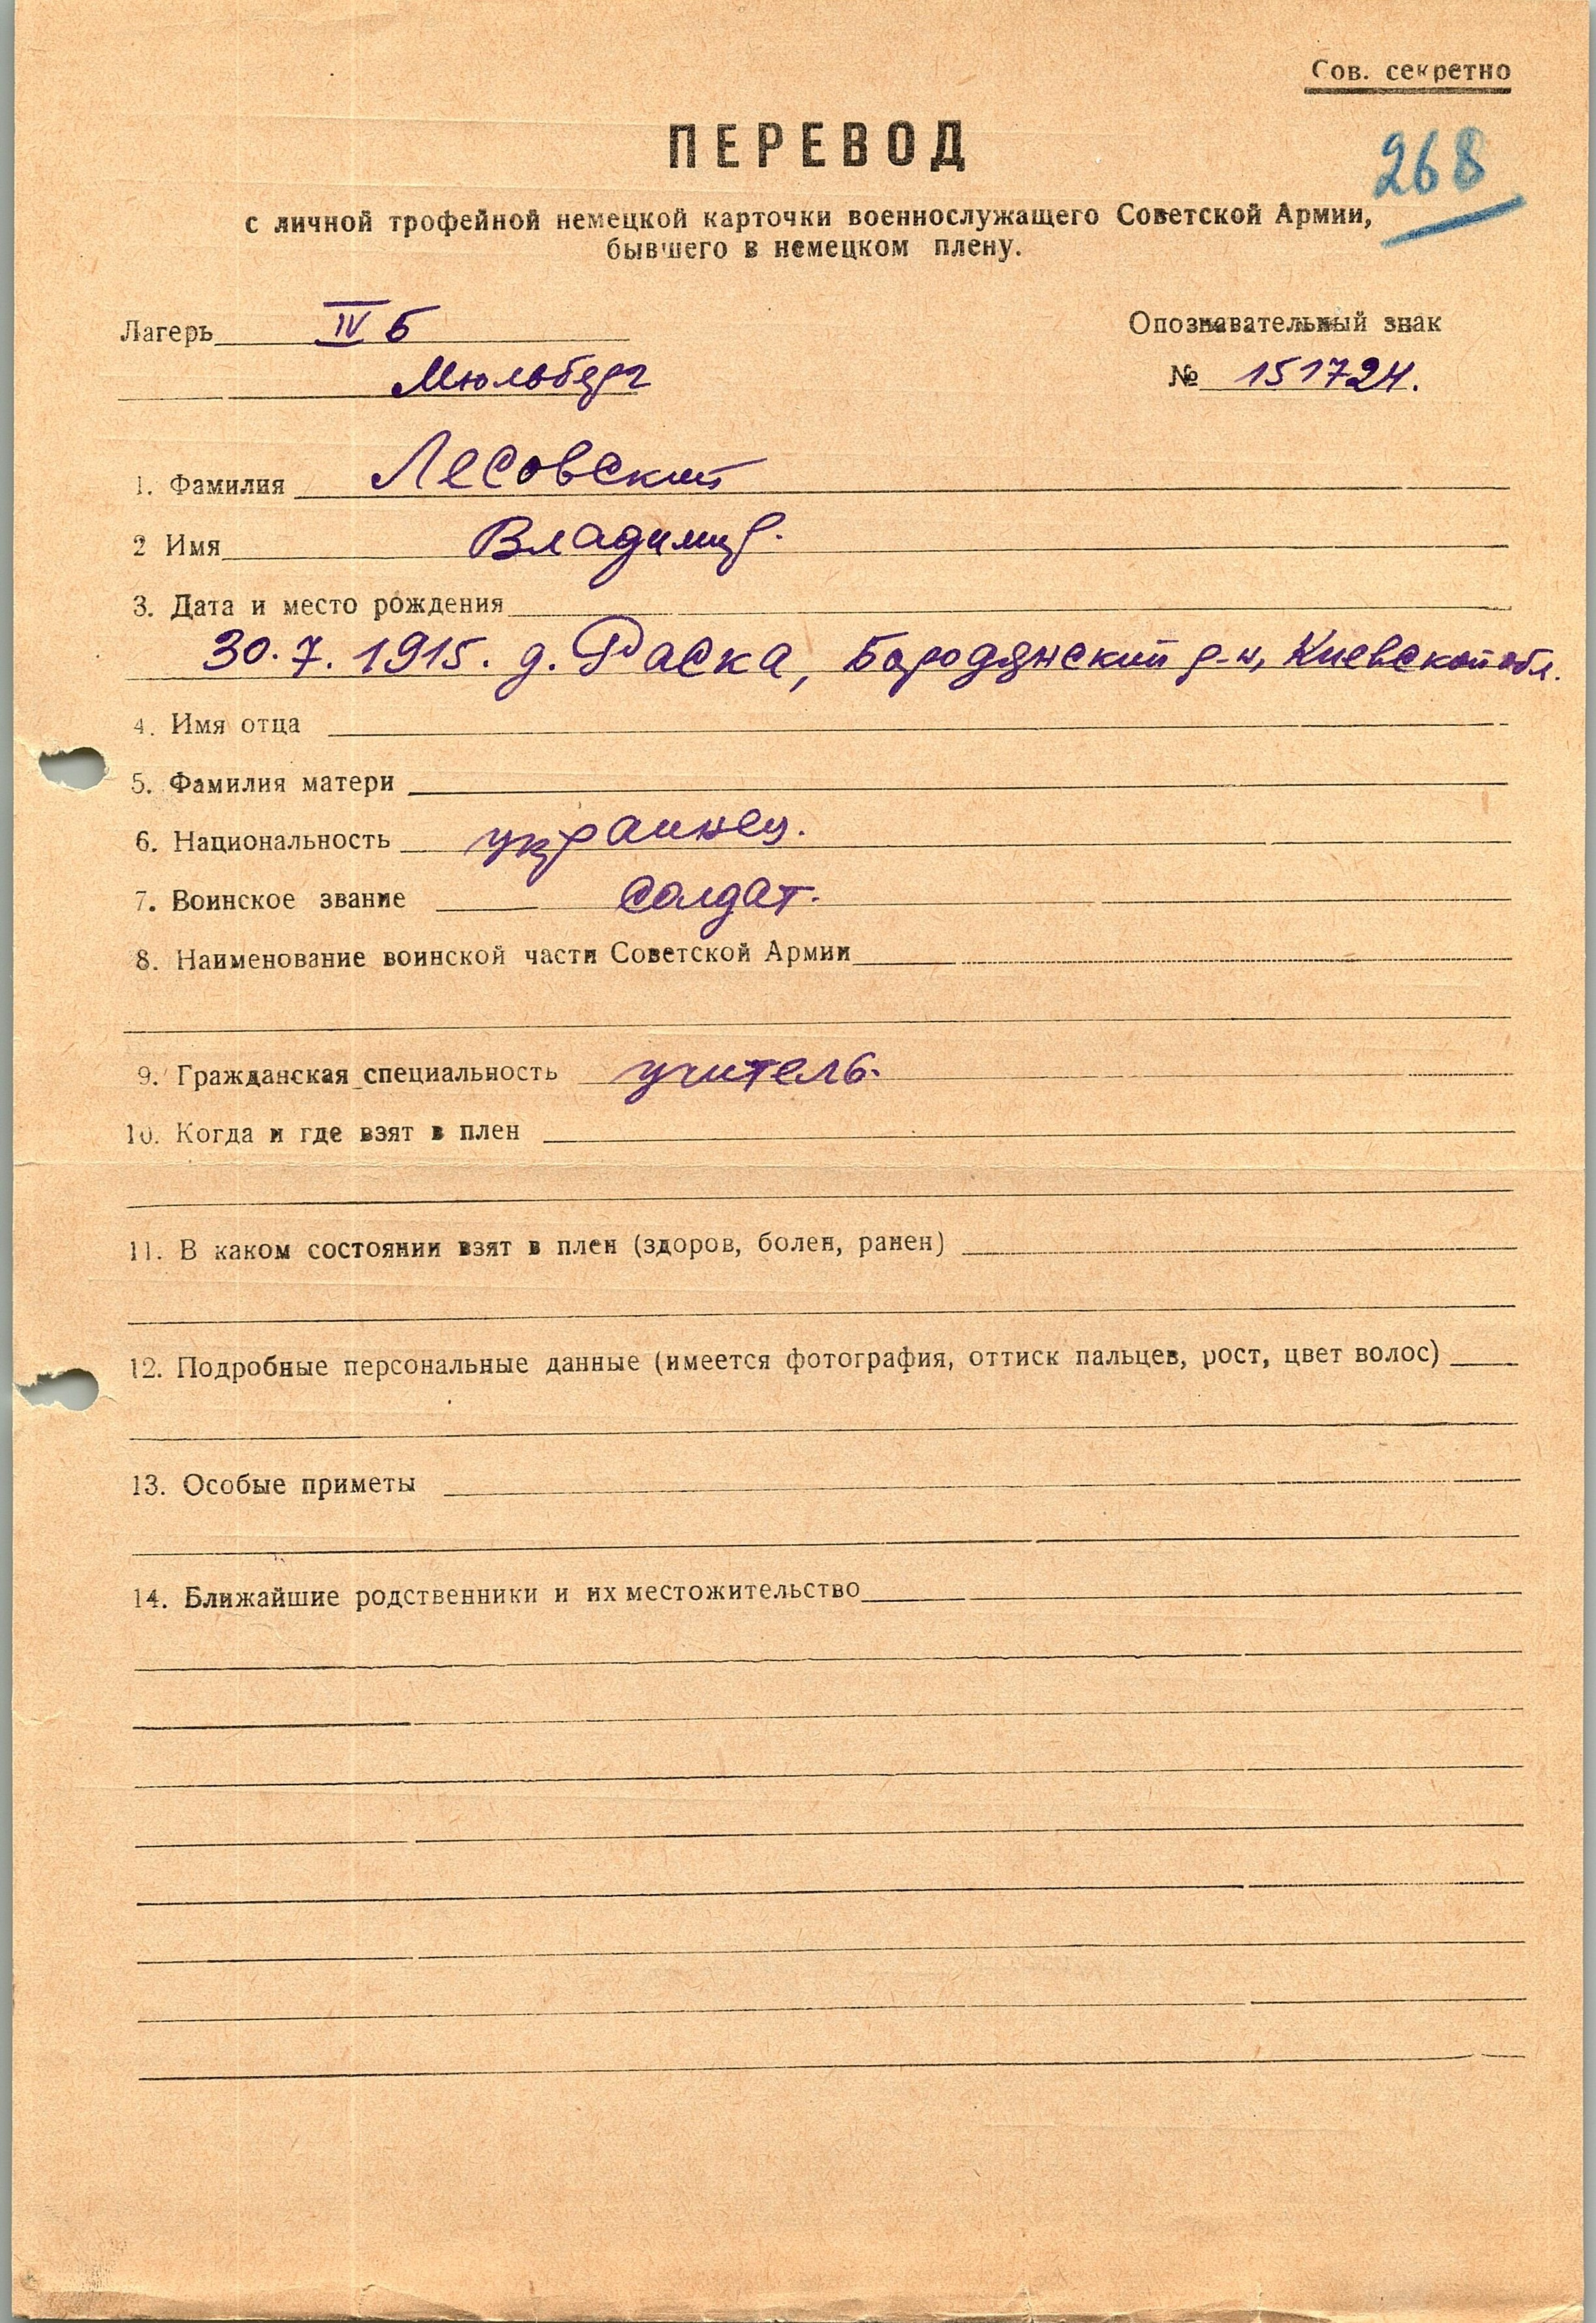 Сов. секретно
ПЕРЕВОД
268
с личной трофейной немецкой карточки военнослужащего Советской Армии,
бывшего в немецком плену.
Лагерь IV Б
Опознавательный знак
Мюльберг
№ 151724.
1. Фамилия Лесовский
2 Имя Владимир.
3. Дата и место рождения
30.7.1915. д. Раска, Бородянский р-н, Киевской обл.
4. Имя отца
5. Фамилия матери
6. Национальность украинец.
7. Воинское звание солдат.
8. Наименование воинской части Советской Армии
9. Гражданская специальность учитель.
10. Когда и где взят в плен
11. В каком состоянии взят в плен (здоров, болен, ранен)
12. Подробные персональные данные (имеется фотография, оттиск пальцев, рост, цвет волос)
13. Особые приметы
14. Ближайшие родственники и их местожительство